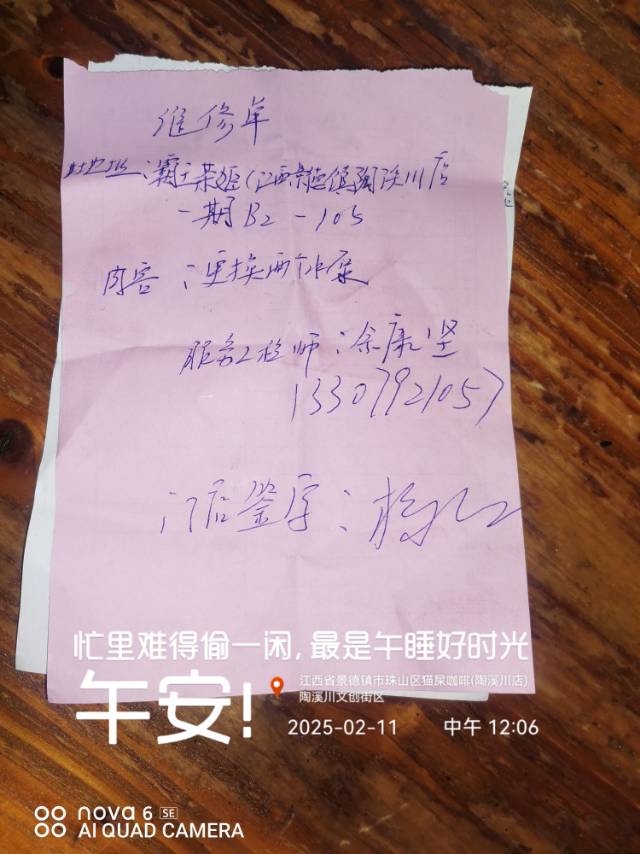 维修单
地址：霸王茶姬（江西景德镇陶溪川店
一期B2-105
内容：更换两个水泵
服务工程师：余康坚
13307921057
门店签字：杨
忙里难得偷一闲，最是午睡好时光
午安！
江西省景德镇市珠山区猫屎咖啡(陶溪川店)
陶溪川文创街区
2025-02-11 中午 12:06
nova 6 SE
AI QUAD CAMERA